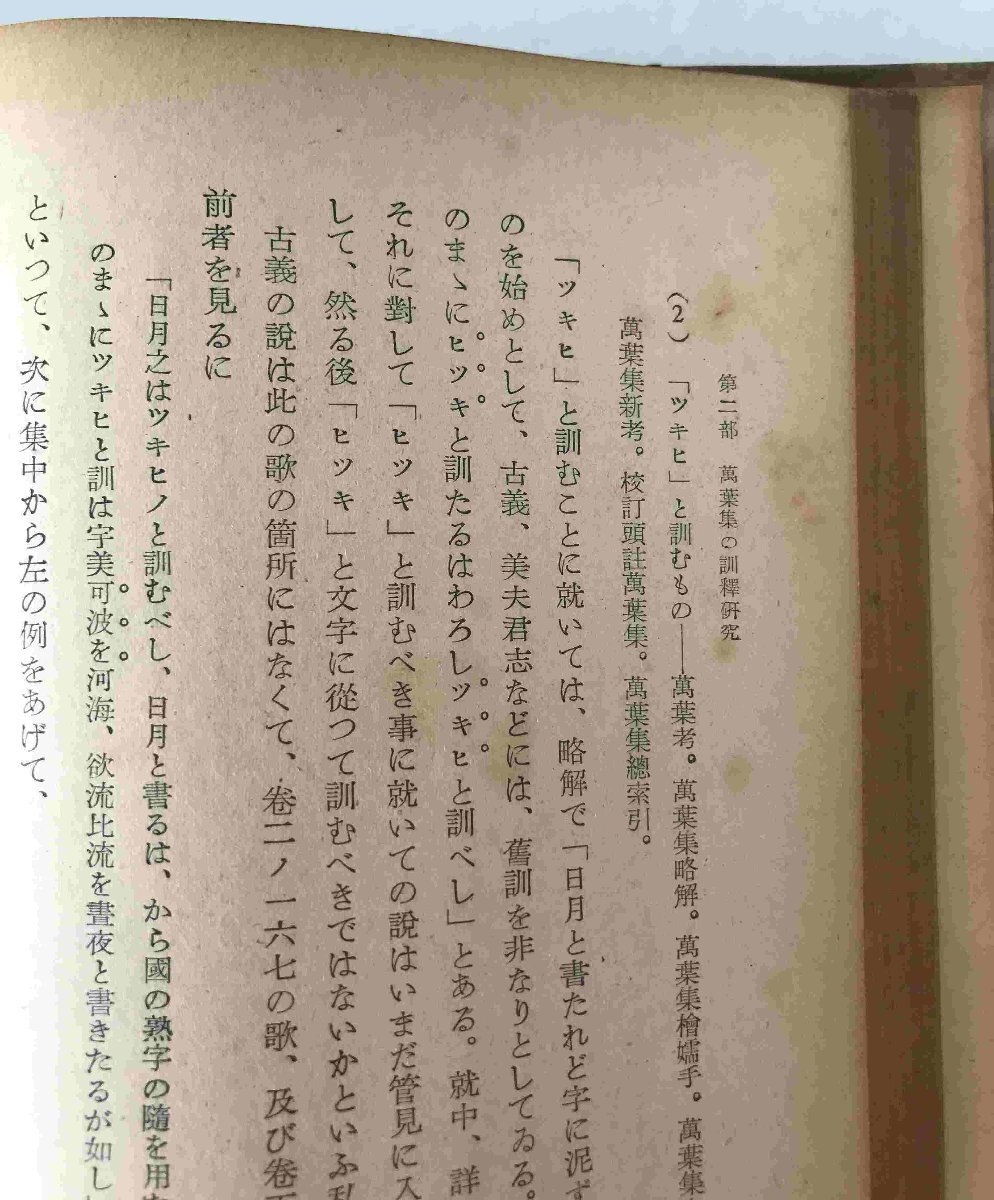 第二部 萬葉集の訓釋硏究
(2) 「ツキヒ」と訓むもの——萬葉考。萬葉集略解。萬葉集檜嬬手。萬葉集
萬葉集新考。校訂頭註萬葉集。萬葉集總索引。
「ツキヒ」と訓むことに就いては、略解で「日月と書たれど字に泥ず
のを始めとして、古義、美夫君志などには、舊訓を非なりとしてゐる。
のまゝにヒツキと訓たるはわろしツキヒと訓べし」とある。就中、詳
それに對して「ヒツキ」と訓むべき事に就いての說はいまだ管見に入
して、然る後「ヒツキ」と文字に從つて訓むべきではないかといふ私
古義の說は此の歌の箇所にはなくて、卷二ノ一六七の歌、及び卷
前者を見るに
「日月之はツキヒノと訓むべし、日月と書るは、から國の熟字の隨を用
のまゝにツキヒと訓は宇美可波を河海、欲流比流を晝夜と書きたるが如し
といつて、次に集中から左の例をあげて、